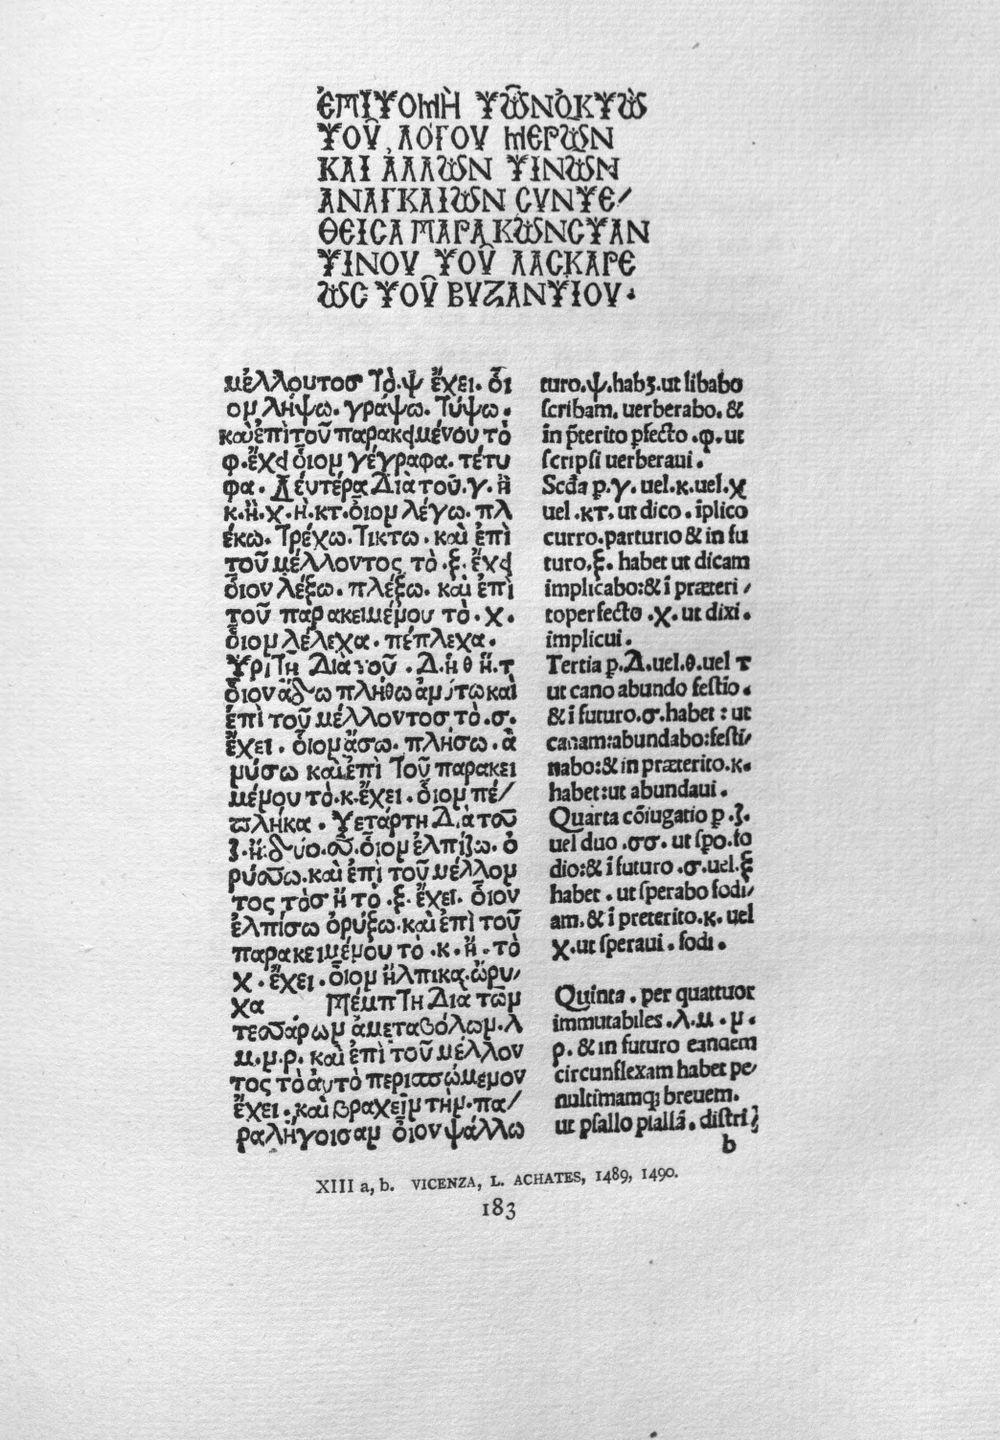 ἘΠΙΤΟΜῊ ΤΩ͂Ν ὈΚΤῺ
ΤΟΥ͂ ΛΌΓΟΥ ΜΕΡΩ͂Ν
ΚΑΙ ἈΛΛΩΝ ΤΙΝΩΝ
ΑΝΑΓΚΑΙΩΝ CΥΝΤΕ/
ΘΕΙCΑ ΠΑΡΑ ΚΩΝCΤΑΝ
ΤΙΝΟΥ ΤΟΥ͂ ΛΑCΚΑΡΕ
ΩC ΤΟΥ͂ ΒΥΖΑΝΤΙΟΥ.
μέλλουτοσ Τὸ.ψ ἔχει. ὅι
ομ λήψω. γράψω. Τύψω.
καὶ ἐπὶ τοῦ παρακειμένου τὸ
φ. ἔχει ὅιομ γέγραφα. τέτυ
φα. Δευτέρα Διὰ τοῦ. γ. ἢ
κ. ἢ. χ. ἢ. κτ. ὅιομ λέγω. πλ
έκω. Τρέχω. Τικτω. καὶ ἐπὶ
τοῦ μέλλοντος τὸ. ξ. ἔχει
ὅιον λέξω. πλέξω. καὶ ἐπὶ
τοῦ παρακειμέμου τὸ. χ.
ὅιομ λέλεχα. πέπλεχα.
Τρίτη Διὰ τοῦ. Δ. ἢ θ ἢ. τ
ὅιον ἄδω πλήθω ἀμύτω καὶ
ἐπὶ τοῦ μέλλοντοσ τὸ. σ.
ἔχει. ὅιομ ἄσω. πλήσω. ἀ
μύσω καὶ ἐπὶ Τοῦ παρακει
μέμου τὸ. κ. ἔχει. ὅιομ πέ/
πλήκα. Τετάρτη Διὰ τοῦ
ζ. ἢ. δύο. σσ. ὅιομ ἐλπίζω. ὀ
ρύσσω. καὶ ἐπὶ τοῦ μέλλομ
τος τὸ σ ἢ τὸ. ξ. ἔχει. ὅιον
ἐλπίσω ὀρύξω. καὶ ἐπὶ τοῦ
παρακειμέμου τὸ. κ. ἢ. τὸ
χ. ἔχει. ὅιομ ἤλπικα. ὤρυ/
χα Πέμπτη Δια τῶμ
τεσσάρωμ ἀμεταβόλωμ. λ
μ. μ. ρ. καὶ ἐπὶ τοῦ μέλλον
τος τὸ ἀυτὸ περισσώμεμον
ἔχει. καὶ βραχεῖμ τὴμ. πα/
ραλήγοισαμ ὅιον ψάλλω
turo. ψ. habꝫ. ut libabo
scribam. uerberabo. &
in p̄terito ꝑfecto. φ. ut
scripsi uerberaui.
Scd̄a ꝑ. γ. uel. κ. uel. χ
uel. κτ. ut dico. īplico
curro. parturio & in fu
turo. ξ. habet ut dicam
implicabo: & ī præteri /
to perfecto. χ. ut dixi.
implicui.
Tertia ꝑ. Δ. uel. θ. uel τ
ut cano abundo festio.
& ī futuro. σ. habet: ut
canam: abundabo: festi/
nabo: & in præterito. κ.
habet: ut abundaui.
Quarta cōiugatio ꝑ. ζ.
uel duo. σσ. ut spo. fo
dio: & ī futuro. σ. uel. ξ
habet. ut sperabo fodi/
am. & ī preterito. κ. uel
χ. ut speraui. fodi.
Quinta. per quattuor
immutabiles. λ. μ. μ.
ρ. & in futuro eandem
circunflexam habet pe/
nultimamqꝫ breuem.
ut psallo psallā. distri
b
XIII a, b. VICENZA, L. ACHATES, 1489, 1490.
183